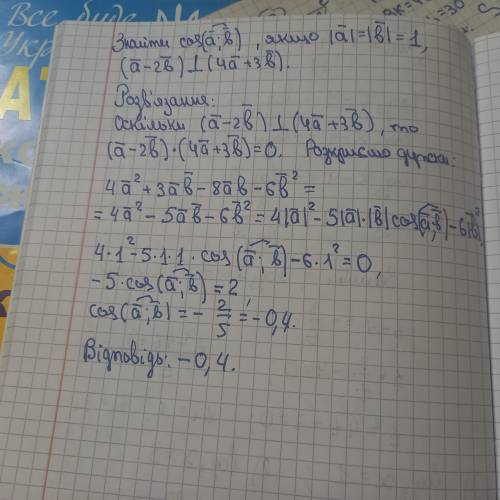 Все буде
Укра
Знайти cos(a̅; b̅), якщо |a̅|=|b̅|=1,
(a̅-2b̅)⊥(4a̅+3b̅).
Розв'язання:
Оскільки (a̅-2b̅)⊥(4a̅+3b̅), то
(a̅-2b̅)·(4a̅+3b̅)=0. Розкриємо дужки:
4a̅²+3a̅b̅-8a̅b̅-6b̅²=
=4a̅²-5a̅b̅-6b̅²=4|a̅|²-5|a̅|·|b̅|cos(a̅;b̅)-6|b̅|²,
4·1²-5·1·1·cos(a̅;b̅)-6·1²=0,
-5·cos(a̅;b̅)=2,
cos(a̅;b̅)=-2/5=-0,4.
Відповідь: -0,4.